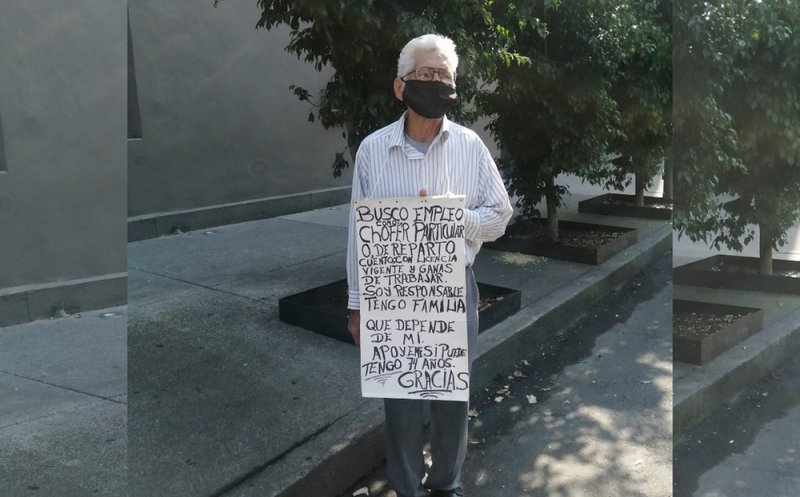 BUSCO EMPLEO
COMO:
CHOFER PARTICULAR
O DE REPARTO
CUENTO CON LICENCIA
VIGENTE Y GANAS
DE TRABAJAR.
SOY RESPONSABLE
TENGO FAMILIA
QUE DEPENDE
DE MI.
APOYEME SI PUEDE
TENGO 74 AÑOS.
GRACIAS